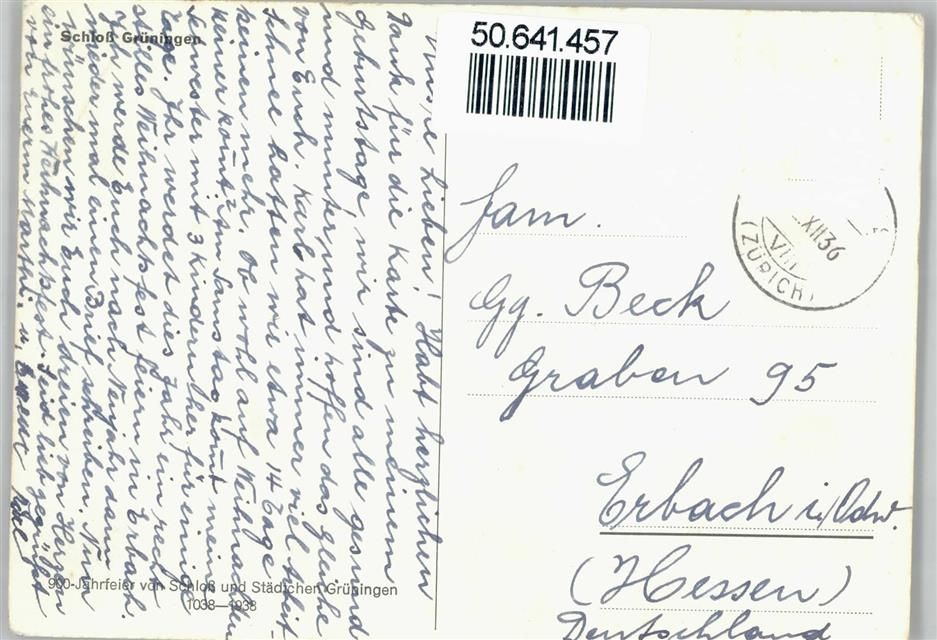 Schloß Grüningen
50.641.457
Unsre Lieben! Habt herzlichen
Dank für die Karte zu meinem
Gebrutstage, wir sind alle gesund
und munter und hoffen das gleiche
von Euch. Karl hat immer viel Arbeit.
Schnee hatten wir etwa 14 Tage
keinen mehr. Ob wohl auf Weihnachten
keiner kommt? Am Samstag kommt meine
Schwester mit 3 Kindern her für einige
Tage. Ihr werdet dies Jahr ein recht
stilles Weihnachtsfest feiern in Erbach.
Ich werde Euch nach Neujahr dann
wieder mal einen Brief schreiben. Nun
wünschen wir Euch dreien von Herzen
ein frohes Weihnachtsfest. Seid lieb gegrüßt
von Euern Marthi, u.
900-Jahrfeier von Schloß und Städtchen Grüningen
1038—1938
XII 36
VIII
(ZÜRICH)
Fam.
Gg. Beck
Graben 95
Erbach i/Odw.
(Hessen)
Deutschland